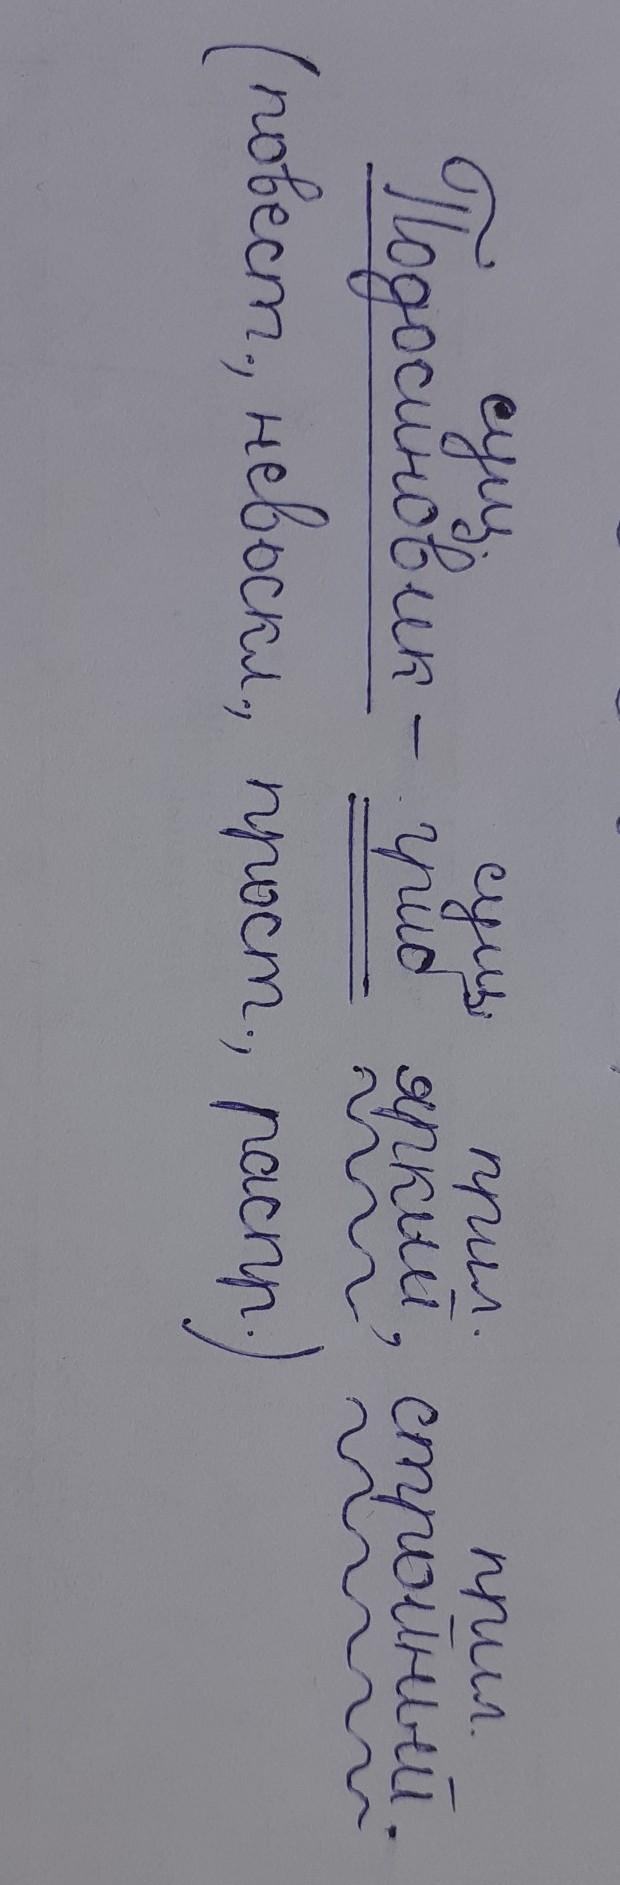 сущ. сущ. прил. прил.
Подосиновик - гриб яркий, стройный.
(повест., невоскл., прост., распр.)